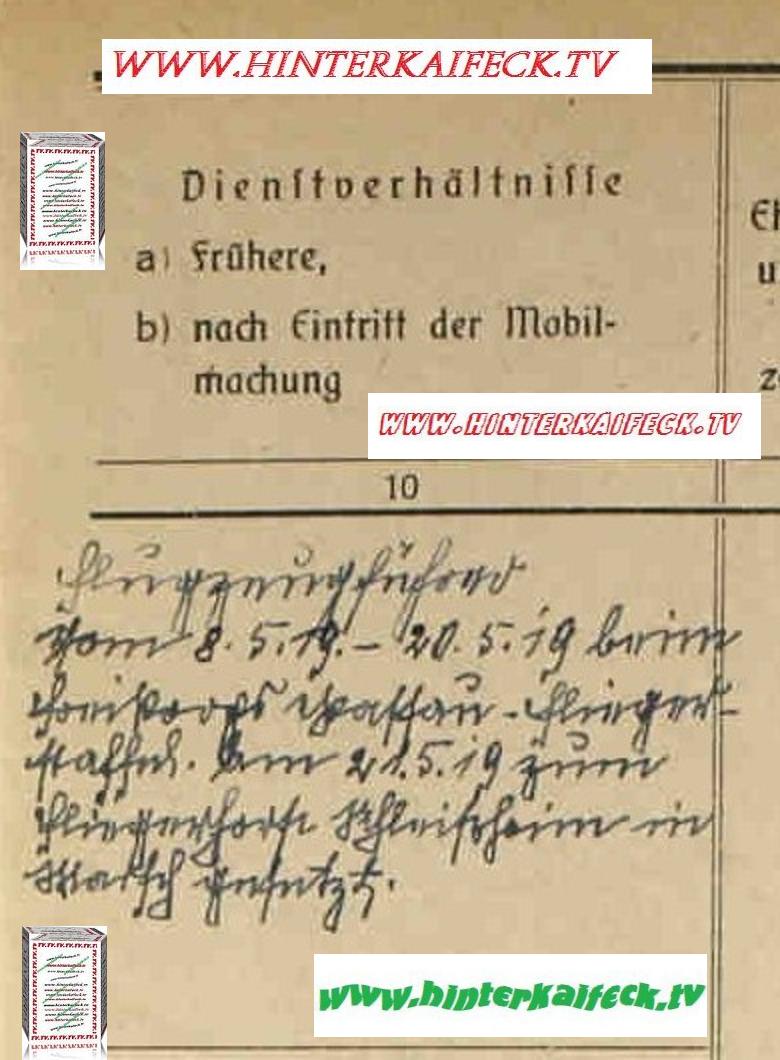 WWW.HINTERKAIFECK.TV
Dienstverhältnisse
a) Frühere,
b) nach Eintritt der Mobil-
machung
Eh
u
z
WWW.HINTERKAIFECK.TV
10
Flugzeugführer
vom 8.5.19. – 20.5.19 beim
Freikorps Passau-Flieger-
staffel. Am 21.5.19 zum
Fliegerhorst Schleißheim in
Marsch gesetzt.
www.hinterkaifeck.tv